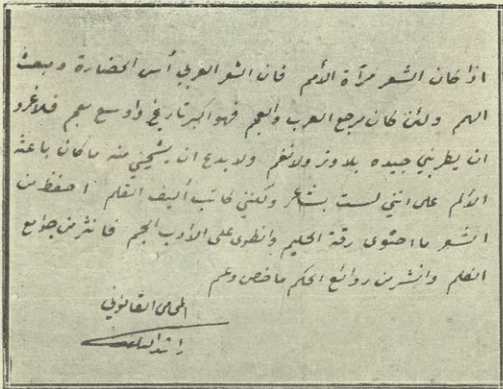 اذا كان الشعر مرآة الأمم فان الشعر العربي أس الحضارة ومبعث
الهمم ولئن كان مرجع العرب والعجم فهو اكبر تاريخ واوسع معجم فلا غرو
ان يطربني جيده بلا وتر ولا نغم ولا بدع ان يشجيني منه ما كان باعثه
الألم على انني لست بشاعر ولكنني كاتب أليف القلم احفظ من
الشعر ما احتوى رقة الحليم وانطوى على الأدب الجم فأنثر من جوامع
الكلم وانشر من روائع الحكم ما خص وعم
المحامي القانوني